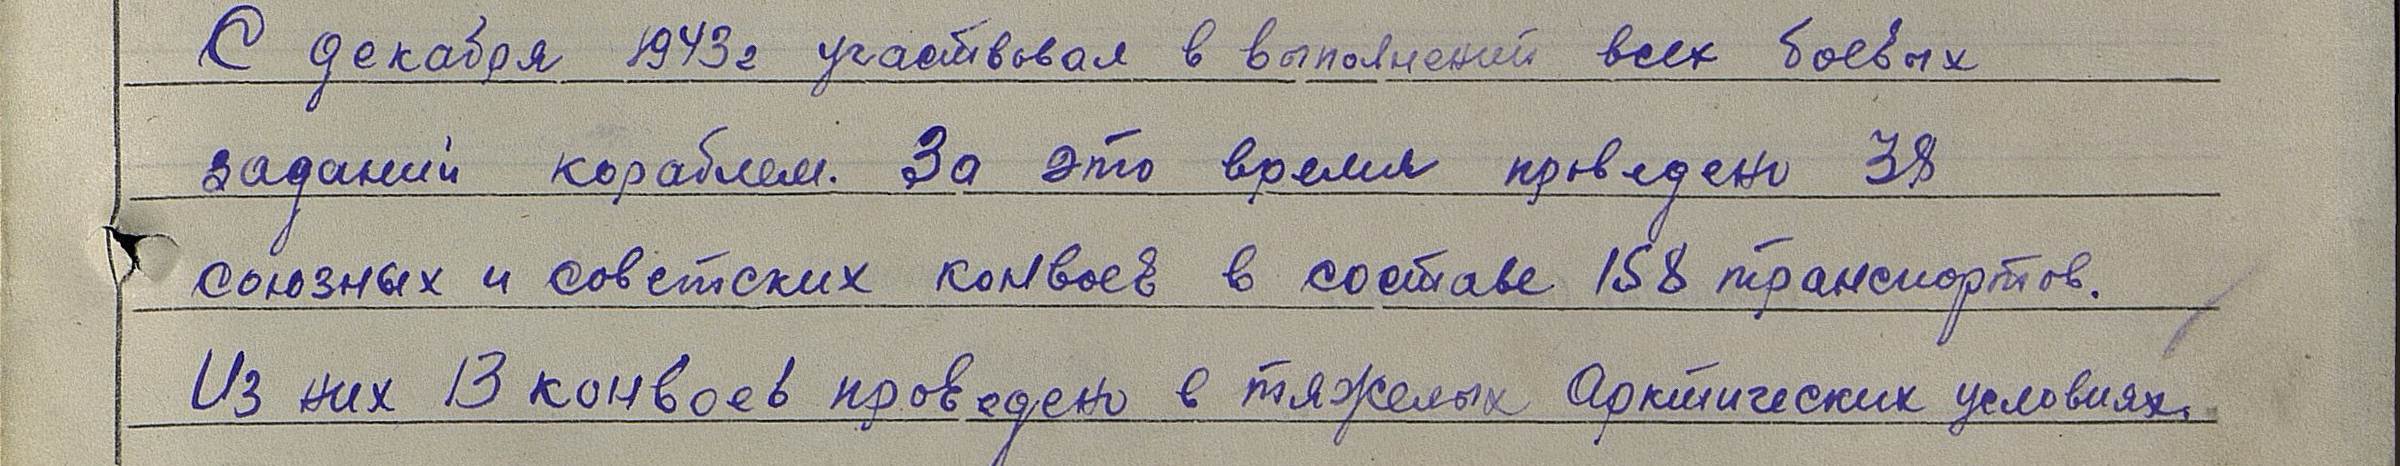 С декабря 1943г участвовал в выполнений всех боевых
заданий кораблем. За это время проведено 38
союзных и советских конвоев в составе 158 транспортов.
Из них 13 конвоев проведено в тяжелых Арктических условиях.